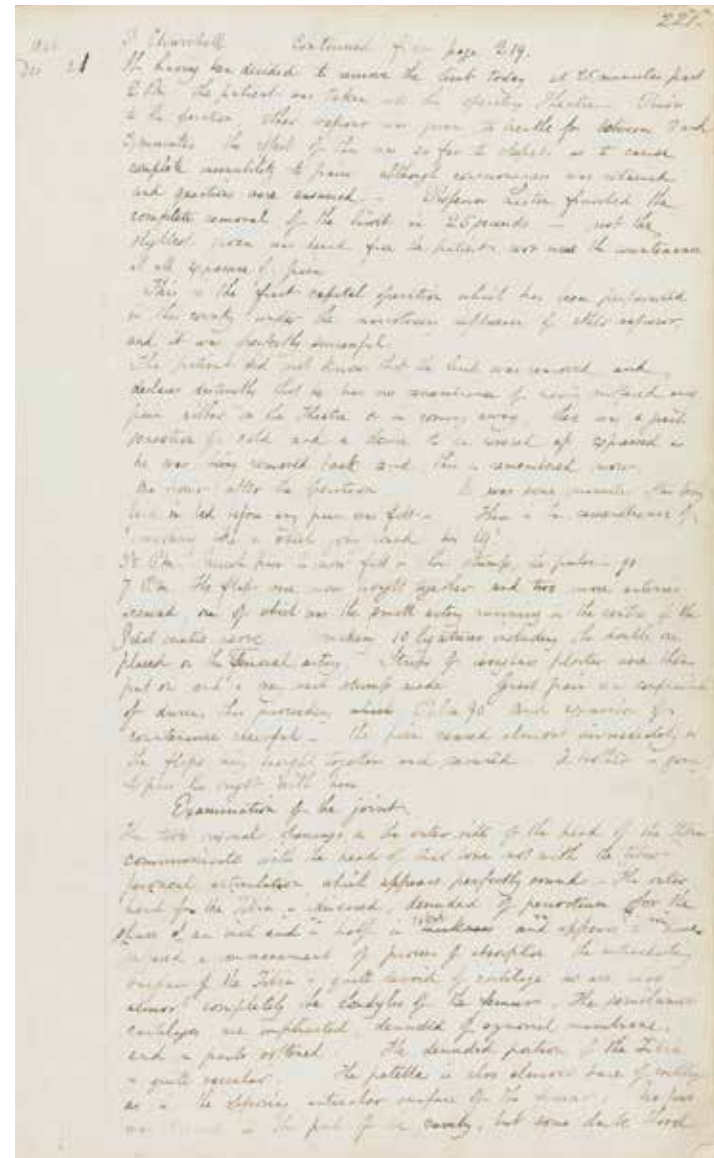 227
Dec 21
Churchill Continued from page 219.
It having been decided to remove the limb today at 25 minutes past
2 P.M. the patient was taken into the operating theatre. Previous
to the operation ether vapour was given to breathe for between 2 and
3 minutes the effect of this was so far to as to cause
complete insensibility to pain although consciousness was retained
and questions were answered. Professor Liston finished the
complete removal of the limb in 25 seconds — not the
slightest groan was heard from the patient nor was the countenance
at all expressive of pain
This is the first capital operation which has been performed
in this country under the influence of ether vapour
and it was perfectly successful
The patient did not know that the limb was removed and
declares distinctly that he has no remembrance of having suffered any
pain either in the theatre or in coming away, there was a
sensation of cold and a desire to be covered up expressed as
he was being removed back and this is remembered now
one hour after the operation It was some minutes after being
in bed before any pain was felt There is the remembrance of
something like a wheel going his leg
5 P.M. Much pain is now felt in the stump, the pulse is 90
7 P.M. The flaps were now brought together and two more arteries
secured one of which was the small artery running in the centre of the
great sciatic nerve making 10 ligatures including the double one
placed on the femoral artery Strips of isinglass plaster were then
put on and a very neat stump made Great pain was complained
of during this proceeding Pulse 90 and expression of
countenance cheerful the pain ceased almost immediately on
the flaps being brought together and secured A brother is going
to pass the night with him
Examination of the joint
The two openings on the outer side of the head of the Tibia
communicate with the head of that bone not with the tibio
peroneal articulation which appears perfectly sound The outer
head of the Tibia is diseased, denuded of periosteum for the
space of an inch and a half in and appears
a commencement of process of absorption the articulating
surface of the Tibia is quite devoid of cartilage as are also
almost completely the condyles of the femur, The semilunar
cartilages are implicated, denuded of synovial membrane,
and in parts softened The denuded portion of the Tibia
is quite vascular. The patella is also almost bare of cartilage
as is the articular surface of the femur. No pus
was in the of the cavity, but some dark blood